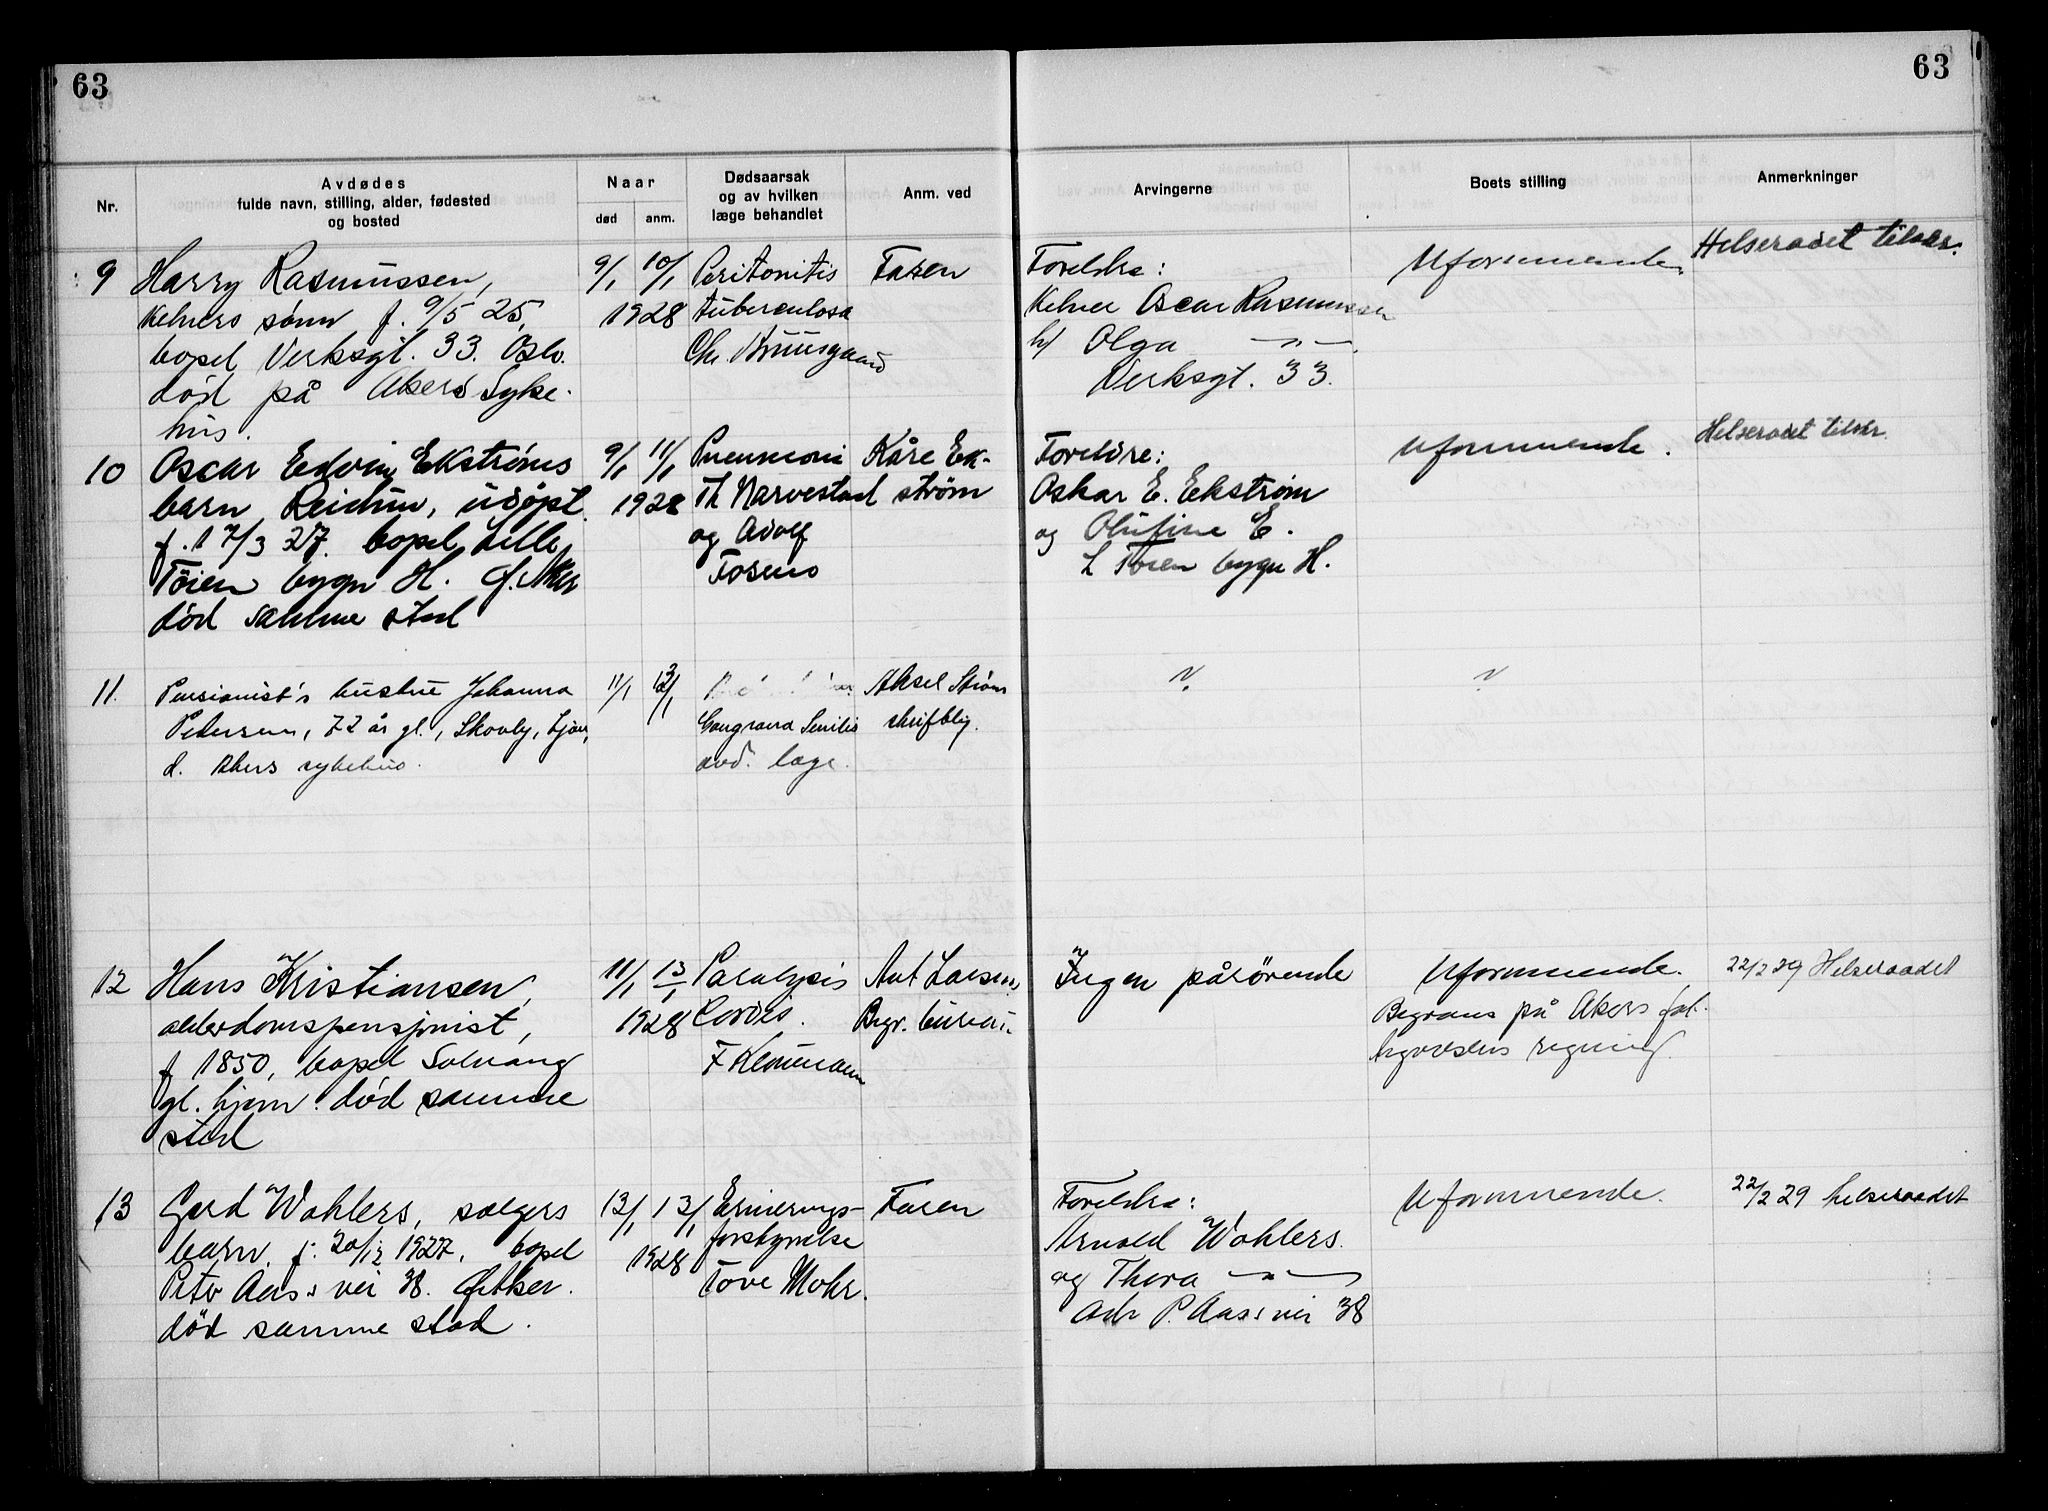 63
63
Nr.
Avdødes
fulde navn, stilling, alder, fødested
og bosted
Naar
død
anm.
Dødsaarsak
og av hvilken
læge behandlet
Anm. ved
Arvingerne
Boets stilling
Anmerkninger
9
Harry Rasmussen,
kelners sønn f. 9/5 25,
bopel Verksgt. 33. Oslo.
død på Akers Syke-
hus.
9/1 10/1
1928
Peritonitis
tuberculosa
Chr. Bruusgaard
Faren
Foreldre:
Kelner Oscar Rasmussen
h/ Olga —"—
Verksgt. 33.
Uformuende
Helseraadet tilskr.
10
Oscar Edvin Ekstrøms
barn Reidun, udøpt.
f. 17/3 27. bopel Lille
Tøien bygn H. Ø. Aker
død samme sted
9/1 11/1
1928
Pneumoni
Th Narvestad
og Adolf
Fosens
Kåre Ek-
strøm
Foreldre:
Oskar E. Ekström
og Olufine E.
L Tøien bygn H.
Uformuende.
Helseraadet tilskr.
11.
Pensionist's hustru Johanna
Pedersen, 72 år gl., Skovly, Ljan,
d. Akers sykehus.
11/1 12/1
Gangraena Senilis
avd. læge.
Aksel Strøm
skriftlig.
?
?
12
Hans Kristiansen,
alderdomspensjonist,
f 1850, bopel Solvang
gl. hjem. død samme
sted
11/1 13/1
1928
Paralysis
Cordis.
F Klemmann
Ant Larsens
Begr. bureau
Ingen pårörende
Uformuende.
Begraves på Akers fat-
regning.
22/2 29 Helseraadet
13
Gerd Wahlers, selgers
barn, f. 20/12 1927, bopel
Peter Aas's vei 38. Ø Aker.
död samme sted.
13/1 13/1
1928
Ernærings-
forstyrrelse
Tove Mohr.
Faren
Foreldre:
Arnold Wahlers.
og Thora —"—
Adr P. Aass vei 38
Uformuende.
22/2 29 helseraadet